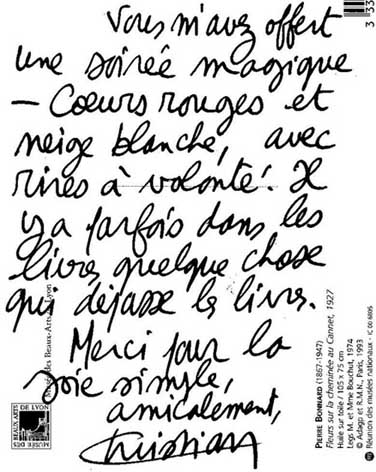 Vous m'avez offert
une soirée magique
— Cœurs rouges et
neige blanche, avec
rires à volonté. Il
y a parfois dans les
livres quelque chose
qui dépasse le livre.
Merci pour la
joie simple,
amicalement,
Christian
3 33
PIERRE BONNARD (1867-1947)
Fleurs sur la cheminée au Cannet, 1927
Huile sur toile / 105 x 75 cm
Legs M. et Mme Bouchut, 1974
© Adagp et R.M.N., Paris, 1993
Réunion des musées nationaux - IC 00 6005
Musée des Beaux-Arts, Lyon
MUSÉE
DES
BEAUX-ARTS
DE LYON